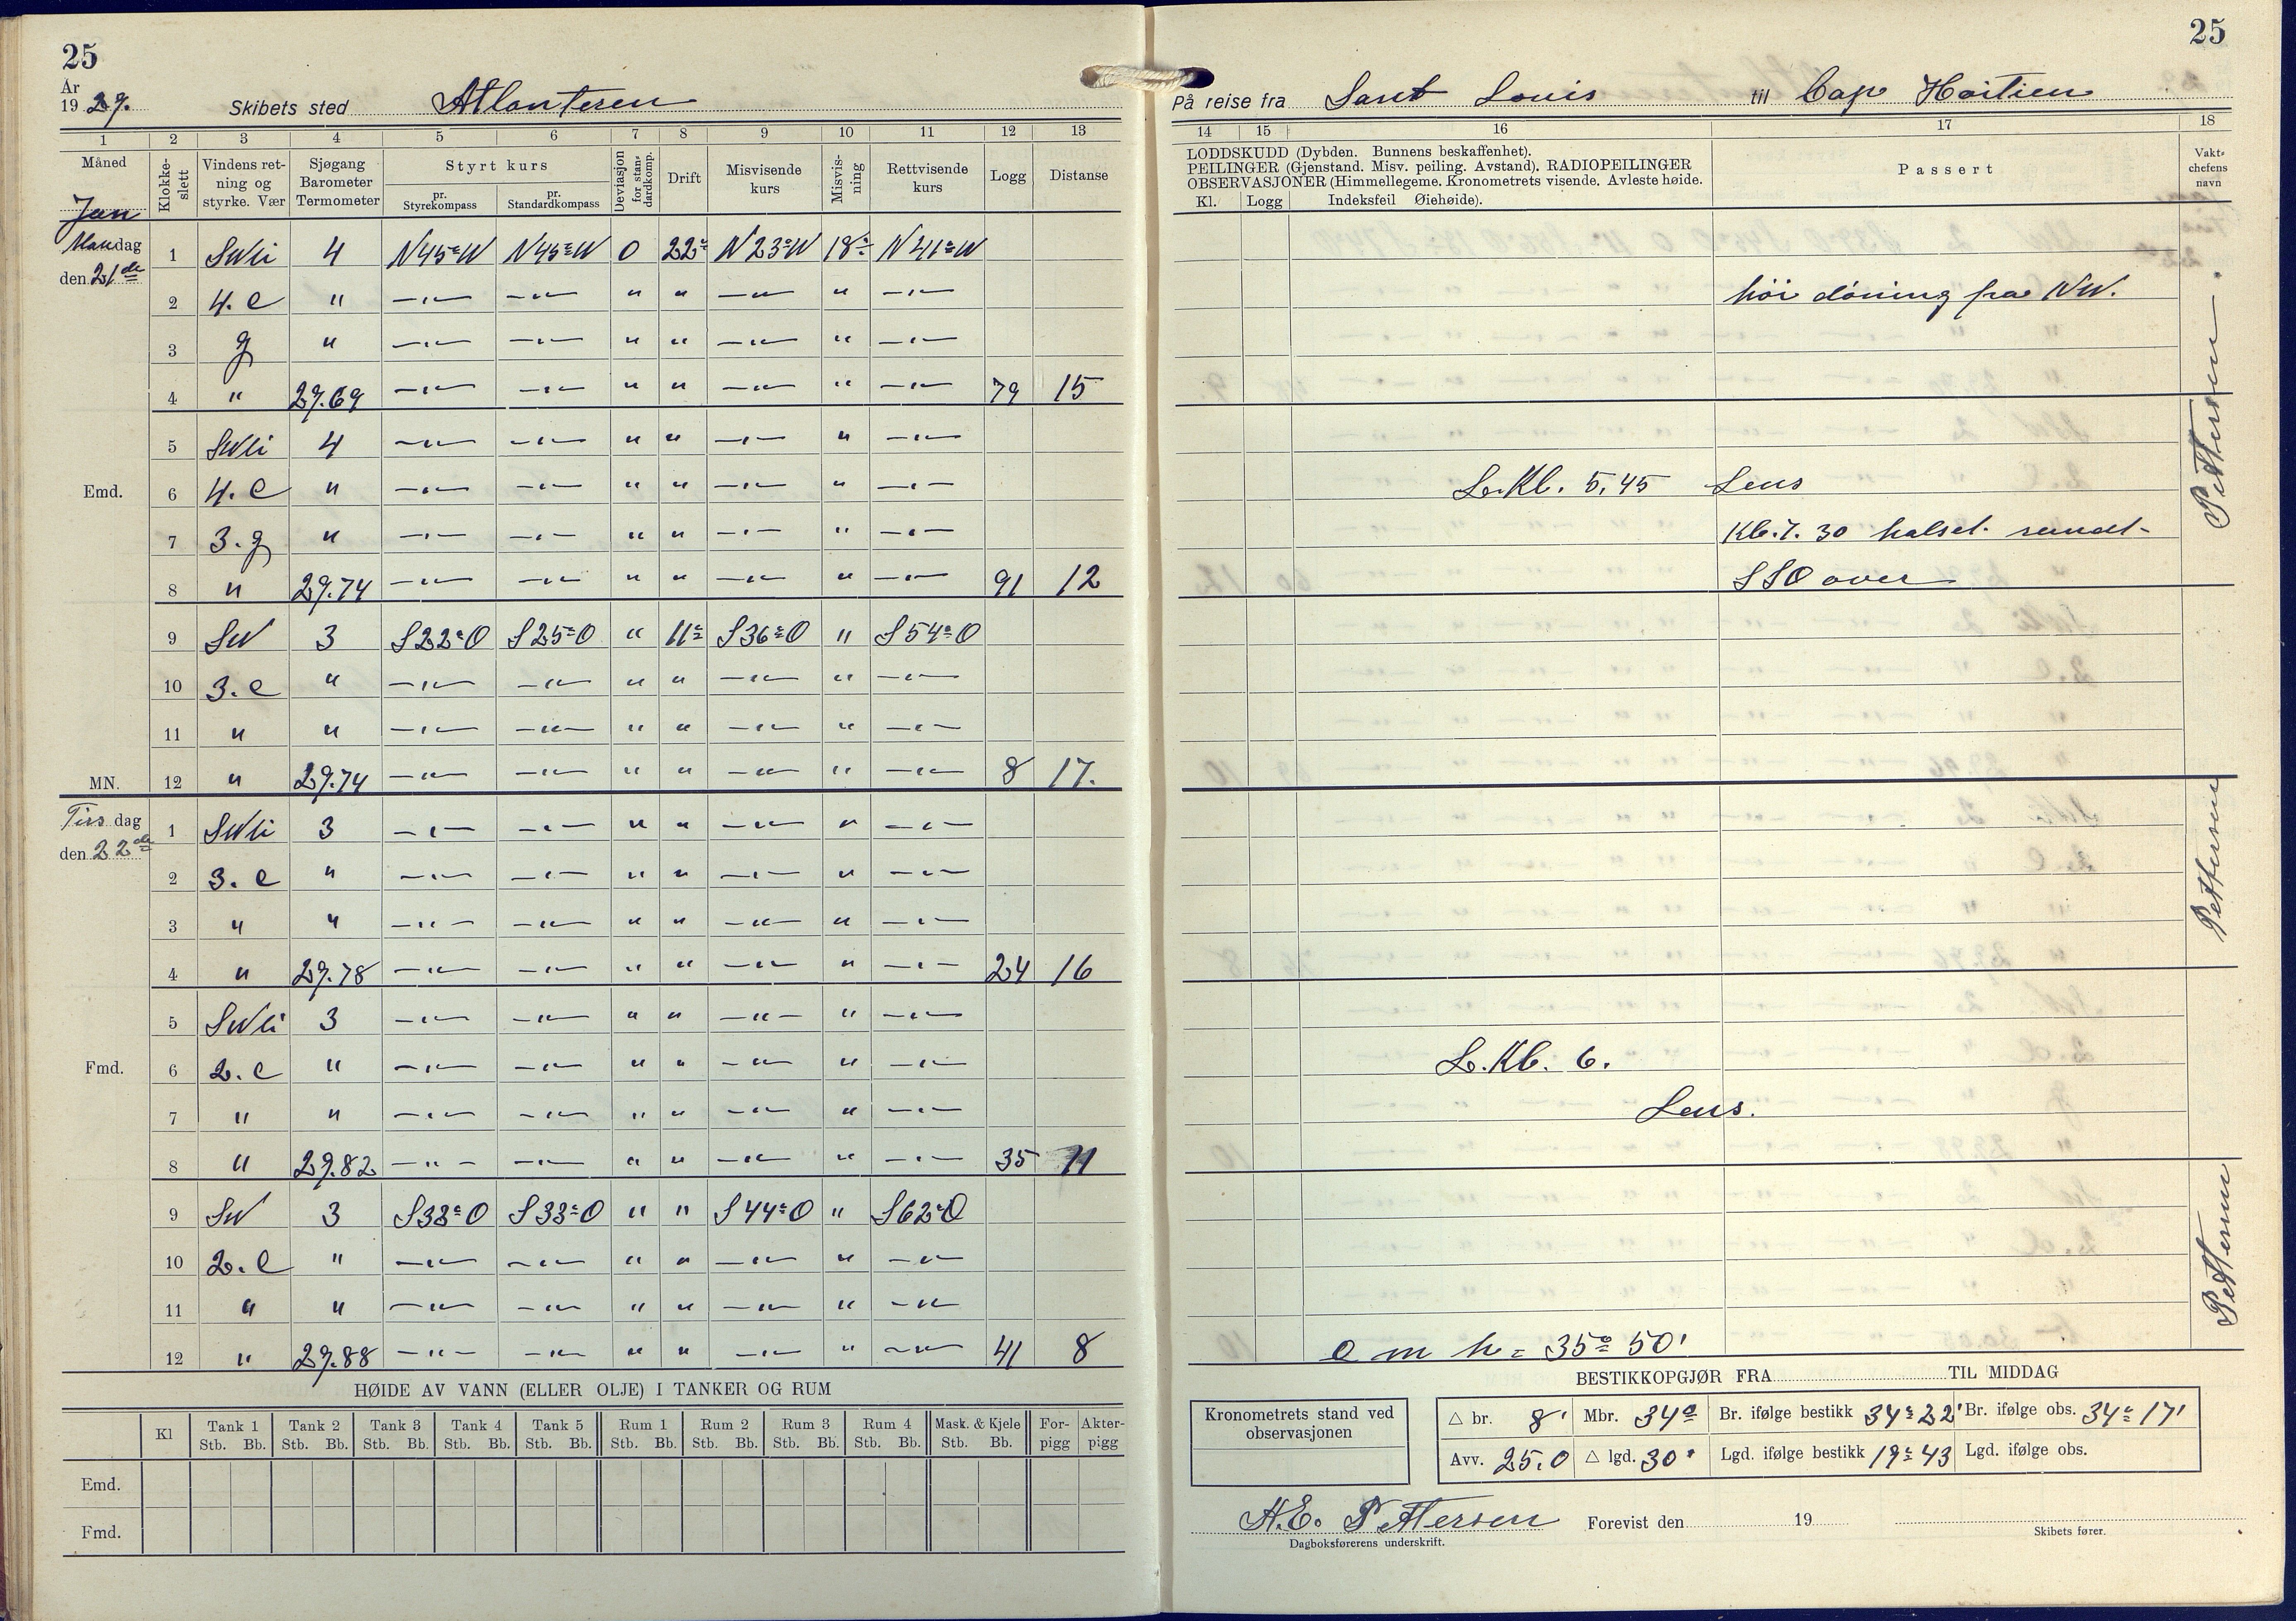 25
År
1929.
Skibets sted Atlanteren
1 2 3 4 5 6 7 8 9 10 11 12 13
Måned Klokkeslett Vindens retning og styrke. Vær Sjøgang Barometer Termometer Styrt kurs pr. Styrekompass pr. Standardkompass Deviasjon for standardkomp. Drift Misvisende kurs Misvisning Rettvisende kurs Logg Distanse
Jan
Mandag den 21de
1 SWli 4 N45°W N45°W 0 22° N23°W 18° N41°W
2 4. c " —"— —"— " " —"— " —"—
3 g " —"— —"— " " —"— " —"—
4 " 29.69 —"— —"— " " —"— " —"— 79 15
5 SWli 4 —"— —"— " " —"— " —"—
Emd. 6 4. c " —"— —"— " " —"— " —"—
7 3. g " —"— —"— " " —"— " —"—
8 " 29.74 —"— —"— " " —"— " —"— 91 12
9 SW 3 S22°O S25°O " 11° S36°O " S54°O
10 3. c " —"— —"— " " —"— " —"—
11 " " —"— —"— " " —"— " —"—
MN. 12 " 29.74 —"— —"— " " —"— " —"— 8 17.
Tirsdag den 22de
1 SWli 3 —"— —"— " " —"— " —"—
2 3. c " —"— —"— " " —"— " —"—
3 " " —"— —"— " " —"— " —"—
4 " 29.78 —"— —"— " " —"— " —"— 24 16
5 SWli 3 —"— —"— " " —"— " —"—
Fmd. 6 2. c " —"— —"— " " —"— " —"—
7 " " —"— —"— " " —"— " —"—
8 " 29.82 —"— —"— " " —"— " —"— 35 11
9 SW 3 S33°O S33°O " " S44°O " S62°O
10 2. c " —"— —"— " " —"— " —"—
11 " " —"— —"— " " —"— " —"—
12 " 29.88 —"— —"— " " —"— " —"— 41 8
HØIDE AV VANN (ELLER OLJE) I TANKER OG RUM
Kl Tank 1 Tank 2 Tank 3 Tank 4 Tank 5 Rum 1 Rum 2 Rum 3 Rum 4 Mask. & Kjele For-pigg Akter-pigg
Stb. Bb. Stb. Bb. Stb. Bb. Stb. Bb. Stb. Bb. Stb. Bb. Stb. Bb. Stb. Bb. Stb. Bb. Stb. Bb.
Emd.
Fmd.
25
På reise fra Sant Louis til Cap Haitien
14 15 16 17 18
LODDSKUDD (Dybden. Bunnens beskaffenhet).
PEILINGER (Gjenstand. Misv. peiling. Avstand). RADIOPEILINGER
OBSERVASJONER (Himmellegeme. Kronometrets visende. Avleste høide.
Kl. Logg Indeksfeil Øiehøide).
Passert
Vakt-chefens navn
høi dóning fra NW.
Pettersen
L. Kl. 5.45 Lens
Kl. 7. 30 halset rundt
SSO over
Pettersen
L. Kl. 6.
Lens.
Pettersen
O m h = 35° 50'
BESTIKKOPGJØR FRA TIL MIDDAG
Kronometrets stand ved observasjonen
△ br. 8' Mbr. 34° Br. ifølge bestikk 34° 22' Br. ifølge obs. 34° 17'
Avv. 25.0 △ lgd. 30' Lgd. ifølge bestikk 19° 43 Lgd. ifølge obs.
H.E. Pettersen Forevist den 19
Dagboksførerens underskrift. Skibets fører.